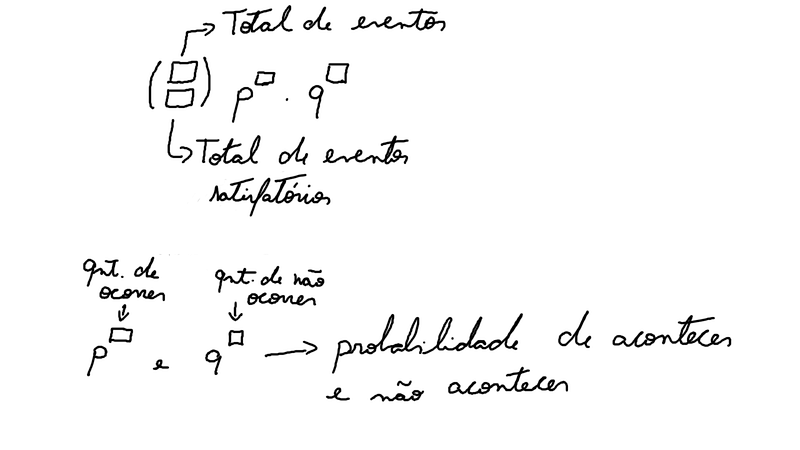 Total de eventos
(□ □) p^□ . q^□
Total de eventos
satisfatórios
qnt. de
ocorrer
qnt. de não
ocorrer
p^□ e q^□ → probabilidade de acontecer
e não acontecer